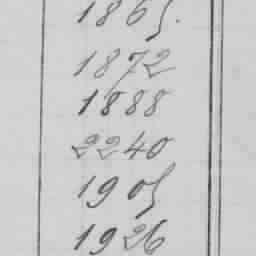 1865.
1872
1888
2240
1905
1926